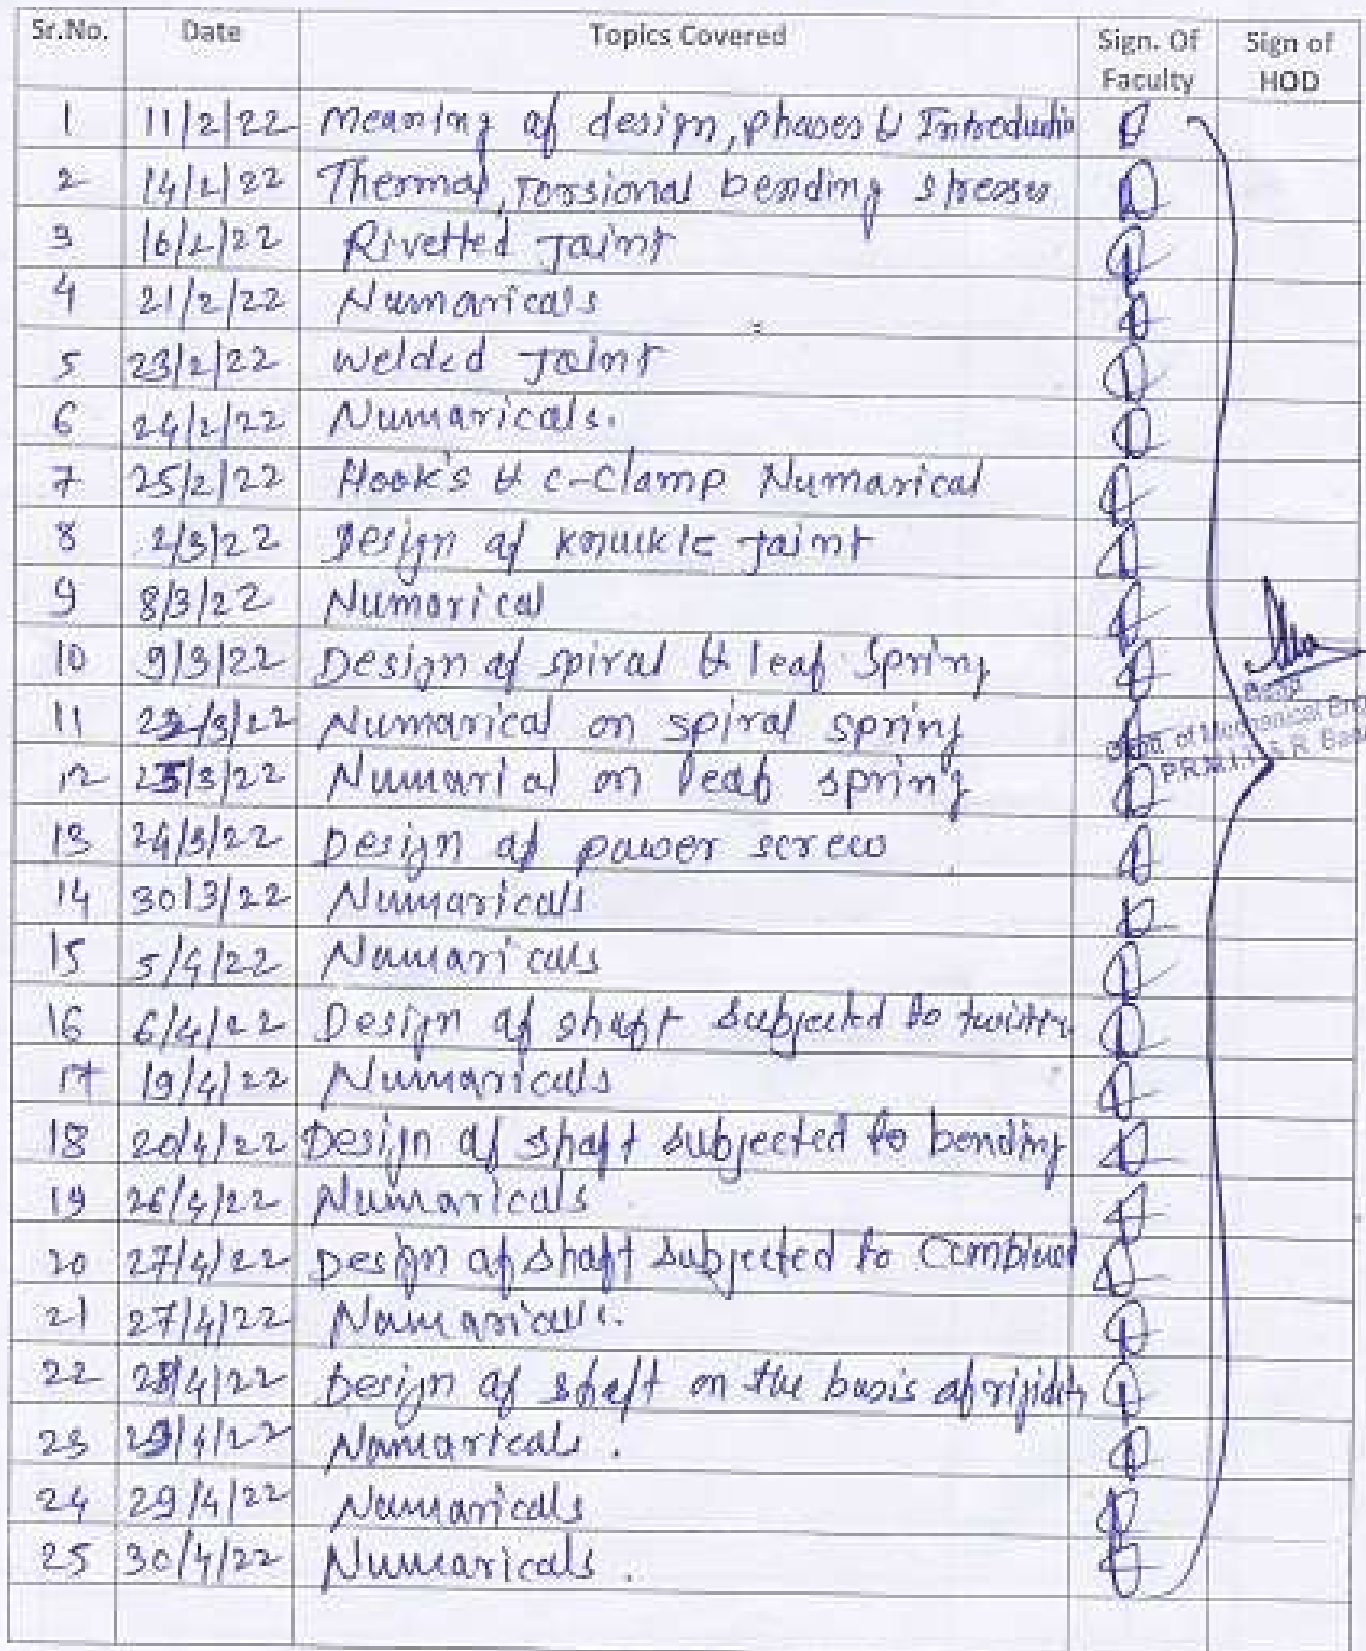 Sr.No. Date Topics Covered Sign. Of Faculty Sign of HOD
1 11/2/22 Meaning of design, phases & Introductio
2 14/2/22 Thermal, Torsional bending stresses
3 16/2/22 Rivetted Joint
4 21/2/22 Numaricals
5 23/2/22 Welded Joint
6 24/2/22 Numaricals.
7 25/2/22 Hook's & C-Clamp Numarical
8 2/3/22 Design of Knuckle Joint
9 8/3/22 Numarical
10 9/3/22 Design of spiral & leaf Spring
11 22/3/22 Numarical on spiral spring
12 23/3/22 Numarial on leaf spring
13 24/3/22 Design of power screw
14 30/3/22 Numaricals
15 5/4/22 Numaricals
16 6/4/22 Design of shaft Subjected to twisting
17 19/4/22 Numaricals
18 20/4/22 Design of shaft subjected to bending
19 26/4/22 Numaricals
20 27/4/22 Design of shaft subjected to Combined
21 27/4/22 Numaricals.
22 28/4/22 Design of shaft on the basis of rigidity
23 29/4/22 Numaricals.
24 29/4/22 Numaricals
25 30/4/22 Numaricals.
of Mechanical Eng